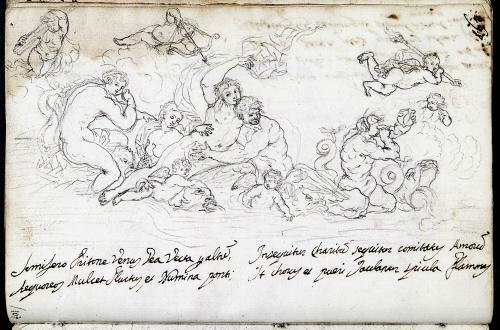 Semifero Tritone Venus Dea Vecta p altũ.
Aequoreos Mulcet Fluctus et Numina ponti
Insequitur Charitũ sequitur comitatus Amorũ
It chorus et pueri Jaculantur spicula flammas